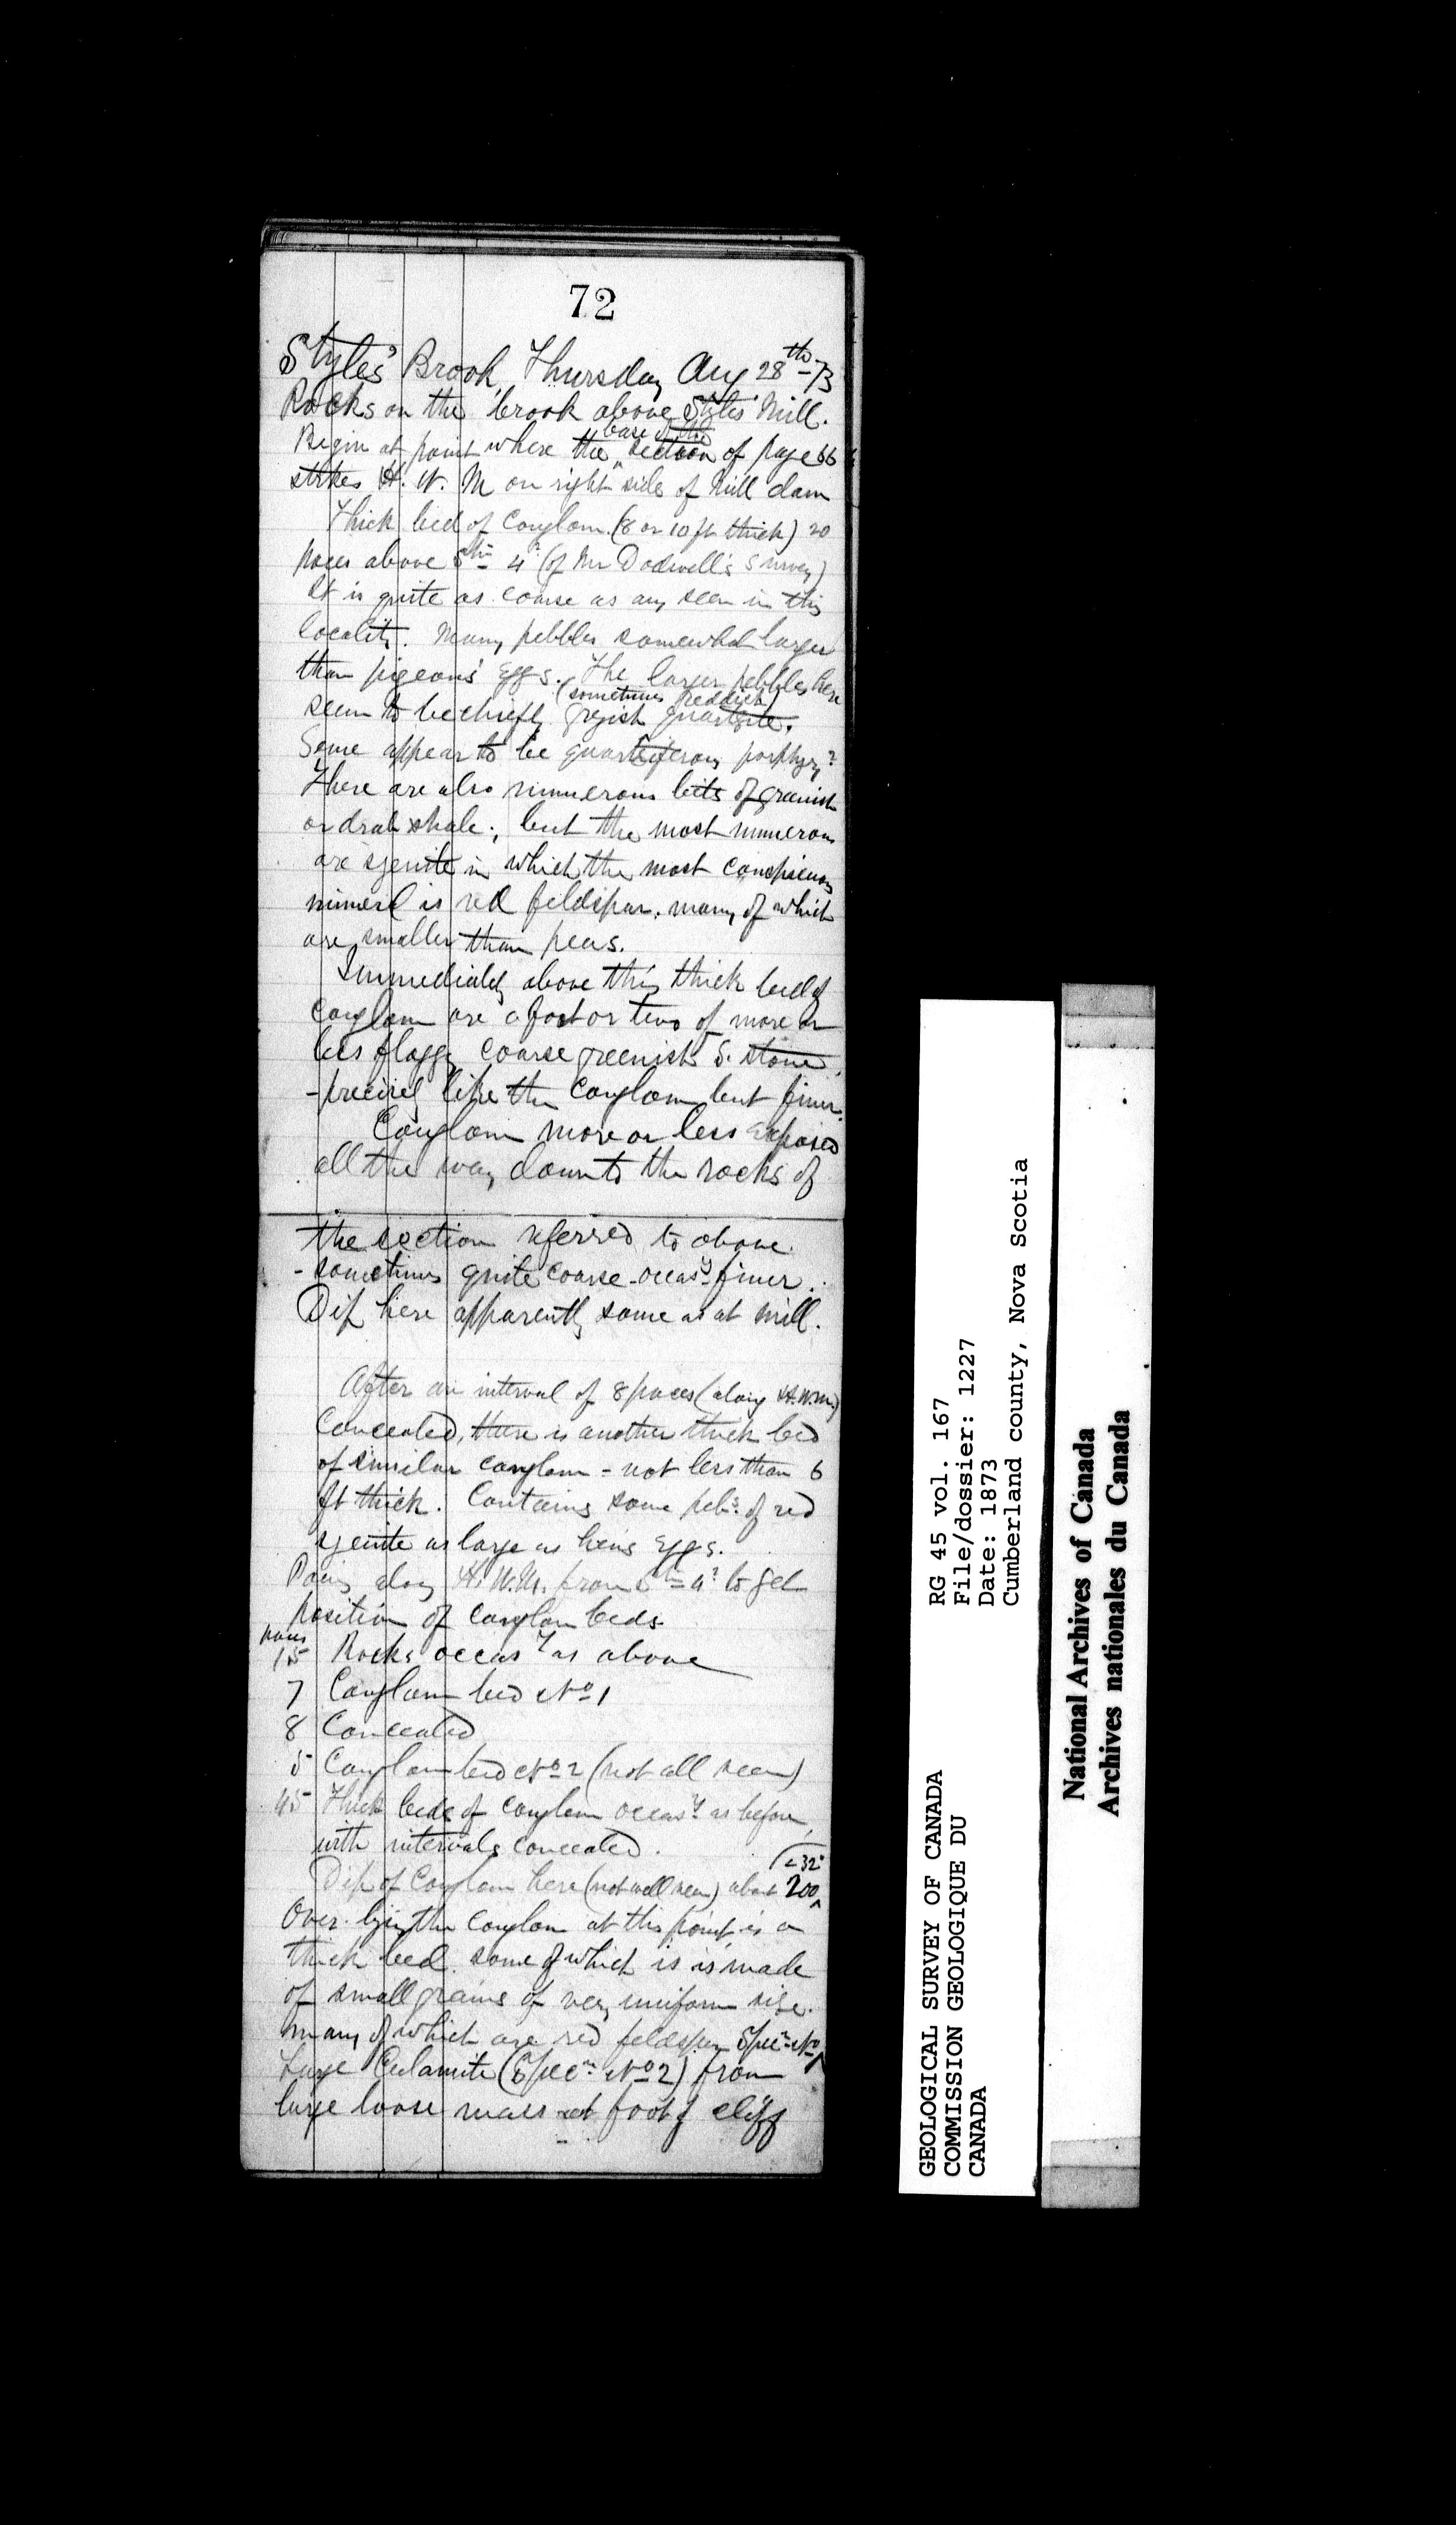 72
Styles' Brook, Thursday Aug 28th -73
Rocks on the brook above Styles' Mill.
Begin at point where the base of the section of page 66
strikes H. W. M on right side of Mill dam
Thick bed of Conglom. (8 or 10 ft thick) 20
paces above 4 (of Mr Dodwell's Survey)
It is quite as coarse as any seen in this
locality. Many pebbles somewhat larger
than pigeons' eggs. The larger pebbles here
seem to be chiefly greyish (sometimes reddish) quartzite.
Some appear to be quartziferous porphyry?
There are also numerous bits of greenish
or drab shale; but the most numerous
are syenite in which the most conspicuous
mineral is red feldspar. many of which
are smaller than peas.
Immediately above this thick bed of
conglom are a foot or two of more or
less flaggy coarse greenish S. stone,
- precisely like the conglom but finer.
Conglom more or less exposed
all the way down to the rocks of
the section referred to above.
- sometimes quite coarse - occasy finer.
Dip here apparently same as at mill.
After an interval of 8 paces (along H.W.M.)
concealed, there is another thick bed
of similar conglom - not less than 6
ft thick. Contains some pebs. of red
syenite as large as hens eggs.
Pacing along H.W.M. from 4 to get
position of conglom beds
paces
15 Rocks occasy as above
7 Conglom bed No 1
8 Concealed
5 Conglom bed No 2 (not all seen)
45 Thick beds of conglom occasy as before,
with intervals concealed.
Dip of Conglom here (not well seen) about 200 <32°
Over-lying the conglom at this point, is a
thick bed some of which is is made
of small grains of very uniform size.
many of which are red feldspar Specn No 1
Large Calamite (Specn No 2) from
large loose mass at foot of cliff
GEOLOGICAL SURVEY OF CANADA
COMMISSION GEOLOGIQUE DU
CANADA
RG 45 vol. 167
File/dossier: 1227
Date: 1873
Cumberland county, Nova Scotia
National Archives of Canada
Archives nationales du Canada